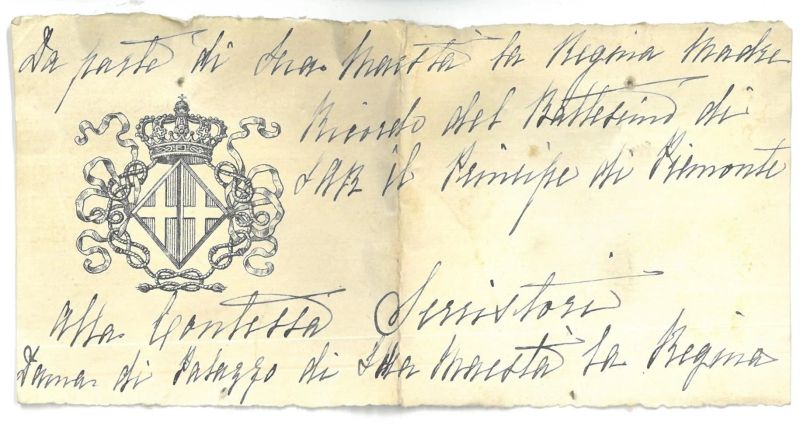 Da parte di Sua Maestà la Regina Madre
Ricordo del Battesimo di
SAR il Principe di Piemonte
Alla Contessa Serristori
Dama di Palazzo di Sua Maestà la Regina